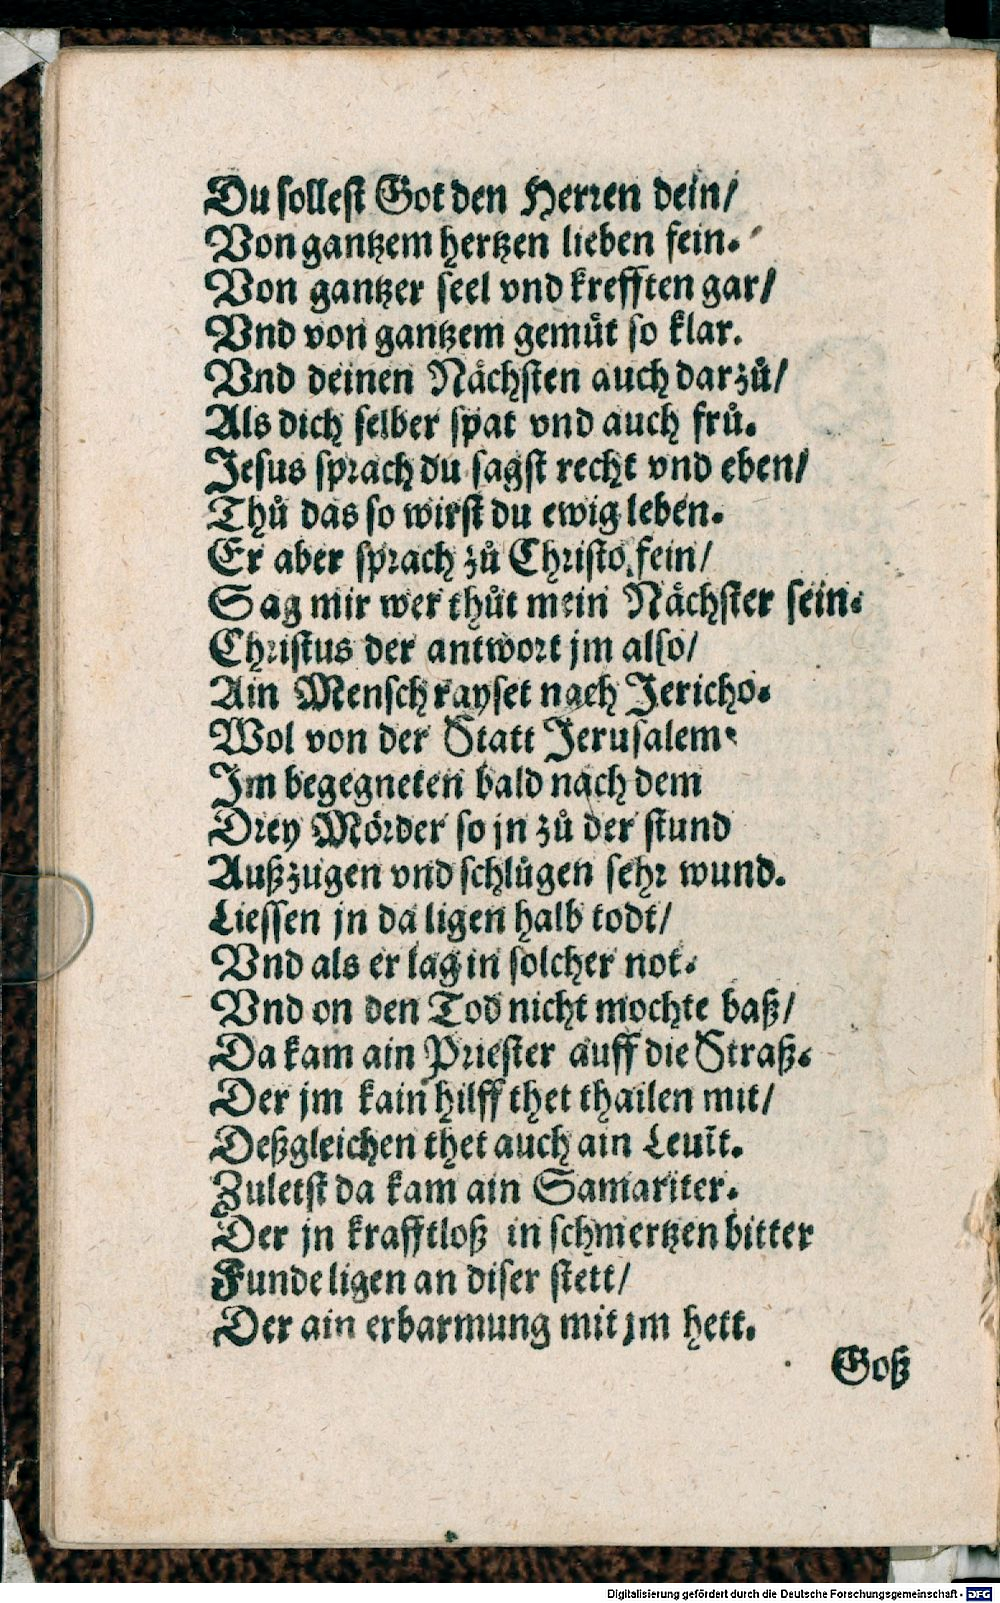 Du sollest Got den Herren dein/
Von gantzem hertzen lieben fein.
Von gantzer seel vnd krefften gar/
Vnd von gantzem gemuͤt so klar.
Vnd deinen Naͤchsten auch darzuͦ/
Als dich selber spat vnd auch fruͦ.
Jesus sprach du sagst recht vnd eben/
Thuͦ das so wirst du ewig leben.
Er aber sprach zuͦ Christo fein/
Sag mir wer thuͦt mein Naͤchster sein.
Christus der antwort jm also/
Ain Mensch rayset nach Jericho.
Wol von der Statt Jerusalem.
Jm begegneten bald nach dem
Drey Moͤrder so jn zuͦ der stund
Außzugen vnd schluͦgen sehr wund.
Liessen jn da ligen halb todt/
Vnd als er lag in solcher not.
Vnd on den Tod nicht mochte baß/
Da kam ain Priester auff die Straß.
Der jm kain hilff thet thailen mit/
Deßgleichen thet auch ain Leuit.
Zuletst da kam ain Samariter.
Der jn krafftloß in schmertzen bitter
Funde ligen an diser stett/
Der ain erbarmung mit jm hett.
Goß
Digitalisierung gefördert durch die Deutsche Forschungsgemeinschaft - DFG